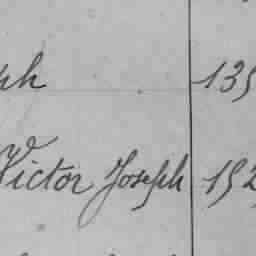 ph 135
Victor Joseph 192